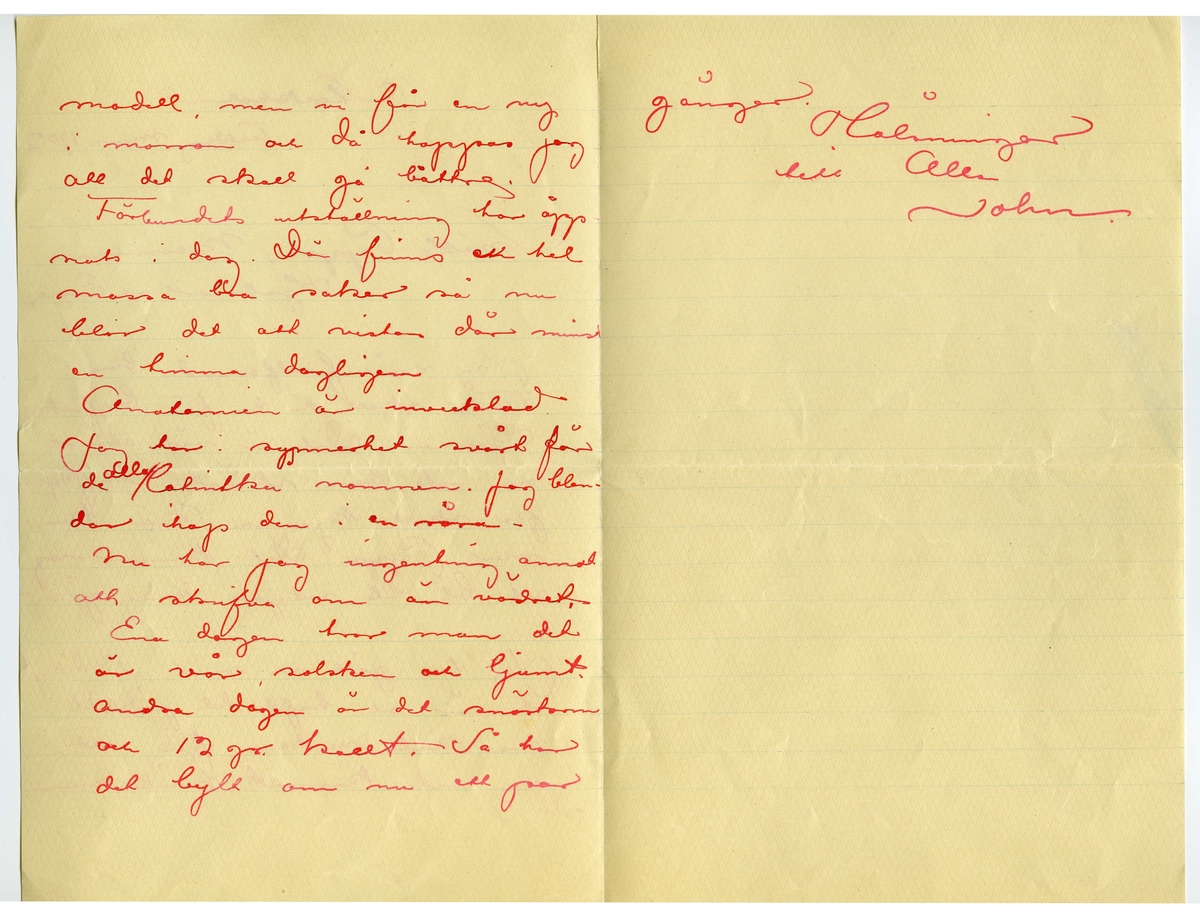 modell, men vi får en ny
i morron och då hoppas jag
att det skall gå bättre.
Förbundets utställning har öpp-
nats i dag. Där finns ett hel
massa bra saker så nu
blir det att vistas där minst
en timma dagligen
Anatomien är invecklad
Jag har i synnerhet svårt för
de alla latinska nammen. Jag blan-
dar ihop den i en röra -
Nu har jag ingenting annat
att skrifva om än vädret.
Ena dagen tror man det
är vår, solsken och ljumt.
Andra dagen är det snöstorm
och 12 gr. kallt. Så har
det bytt om nu ett par
gånger.
Hälsningar
till Alla
John.